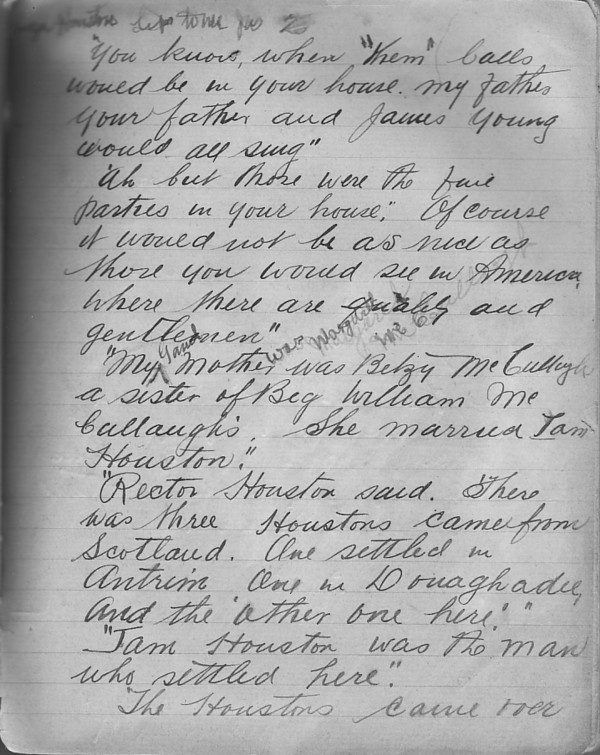 "You know, when "them" balls
would be in your house. my father
your father and James Young
would all sing"
"Ah but those were the fine
parties in your house." Of course
it would not be as nice as
those you would see in America
where there are quality and
gentlemen"
Grand was Margaret
Mc
"My Mother was Betzy McCullagh
a sister of Beg William Mc
Cullaughs. She married Tam
Houston."
"Rector Houston said. There
was three Houstons came from
Scotland. One settled in
Antrim One in Donaghadee,
And the other one here." "
"Tam Houston was the man
who settled here".
"The Houstons came over